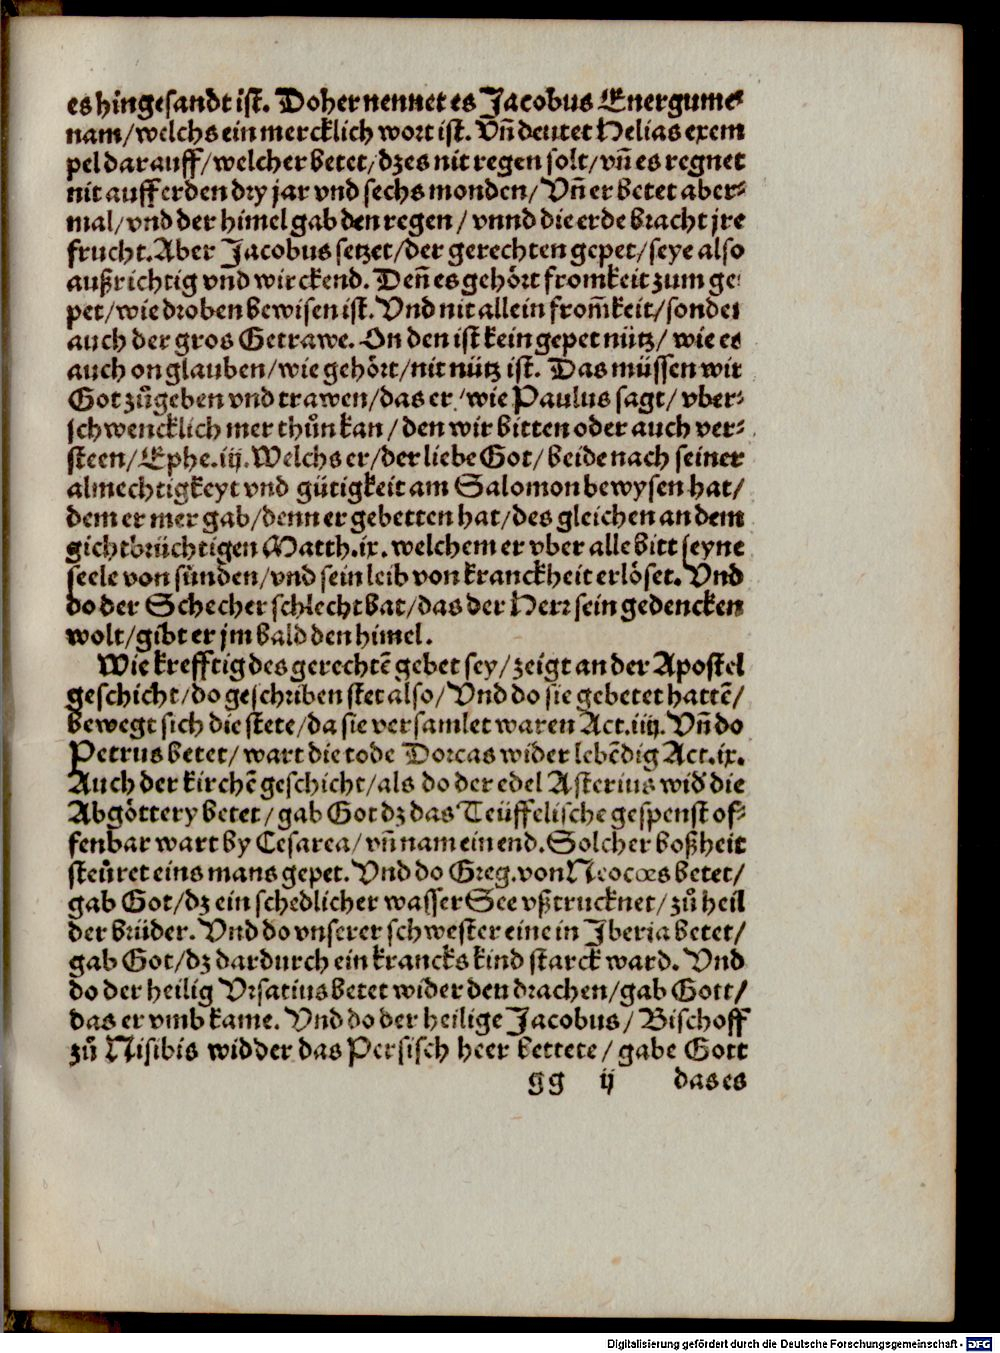 es hingesandt ist. Doher nennet es Jacobus Energume⸗
nam/welchs ein mercklich wort ist. Vñ deutet Helias exem
pel darauff/welcher betet/dz es nit regen solt/vñ es regnet
nit auff erden dry jar vnd sechs monden/Vñ er betet aber⸗
mal/vnd der himel gab den regen/ vnnd die erde bracht jre
frucht. Aber Jacobus setzet/der gerechten gepet/seye also
außrichtig vnd wirckend. Deñ es gehört fromkeit zum ge⸗
pet/wie droben bewisen ist. Vnd nit allein from̃keit/sonder
auch der gros Getrawe. On den ist kein gepet nütz/ wie es
auch on glauben/wie gehört/nit nütz ist. Das müssen wir
Got zůgeben vnd trawen/das er/wie Paulus sagt/ vber⸗
schwencklich mer thůn kan/den wir bitten oder auch ver⸗
steen/Ephe.iij. Welchs er/der liebe Got/beide nach seiner
almechtigkeyt vnd gütigkeit am Salomon bewysen hat/
dem er mer gab/denn er gebetten hat/des gleichen an dem
gichtbrüchtigen Matth.ix. welchem er vber alle bitt seyne
seele von sünden/vnd sein leib von kranckheit erlöset. Vnd
do der Schecher schlecht bat/das der Herr sein gedencken
wolt/gibt er jm bald den himel.
Wie krefftig des gerechtē gebet sey/zeigt an der Apostel
geschicht/do geschriben stet also/Vnd do sie gebetet hattē/
bewegt sich die stete/da sie versamlet waren Act.iiij. Vñ do
Petrus betet/ wart die tode Dorcas wider lebēdig Act.ix.
Auch der kirchē geschicht/als do der edel Asterius wid' die
Abgöttery betet/gab Got dz das Teüffelische gespenst of⸗
fenbar wart by Cesarea/vñ nam ein end. Solcher boßheit
steüret eins mans gepet. Vnd do Greg. von Neoces betet/
gab Got/dz ein schedlicher wasser See vßtrucknet/zů heil
der brüder. Vnd do vnserer schwester eine in Iberia betet/
gab Got/dz dardurch ein krancks kind starck ward. Vnd
do der heilig Vrsatius betet wider den drachen/gab Gott/
das er vmb kame. Vnd do der heilige Jacobus/ Bischoff
zů Nisibis widder das Persisch heer bettete/gabe Gott
gg ij das es
Digitalisierung gefördert durch die Deutsche Forschungsgemeinschaft - DFG